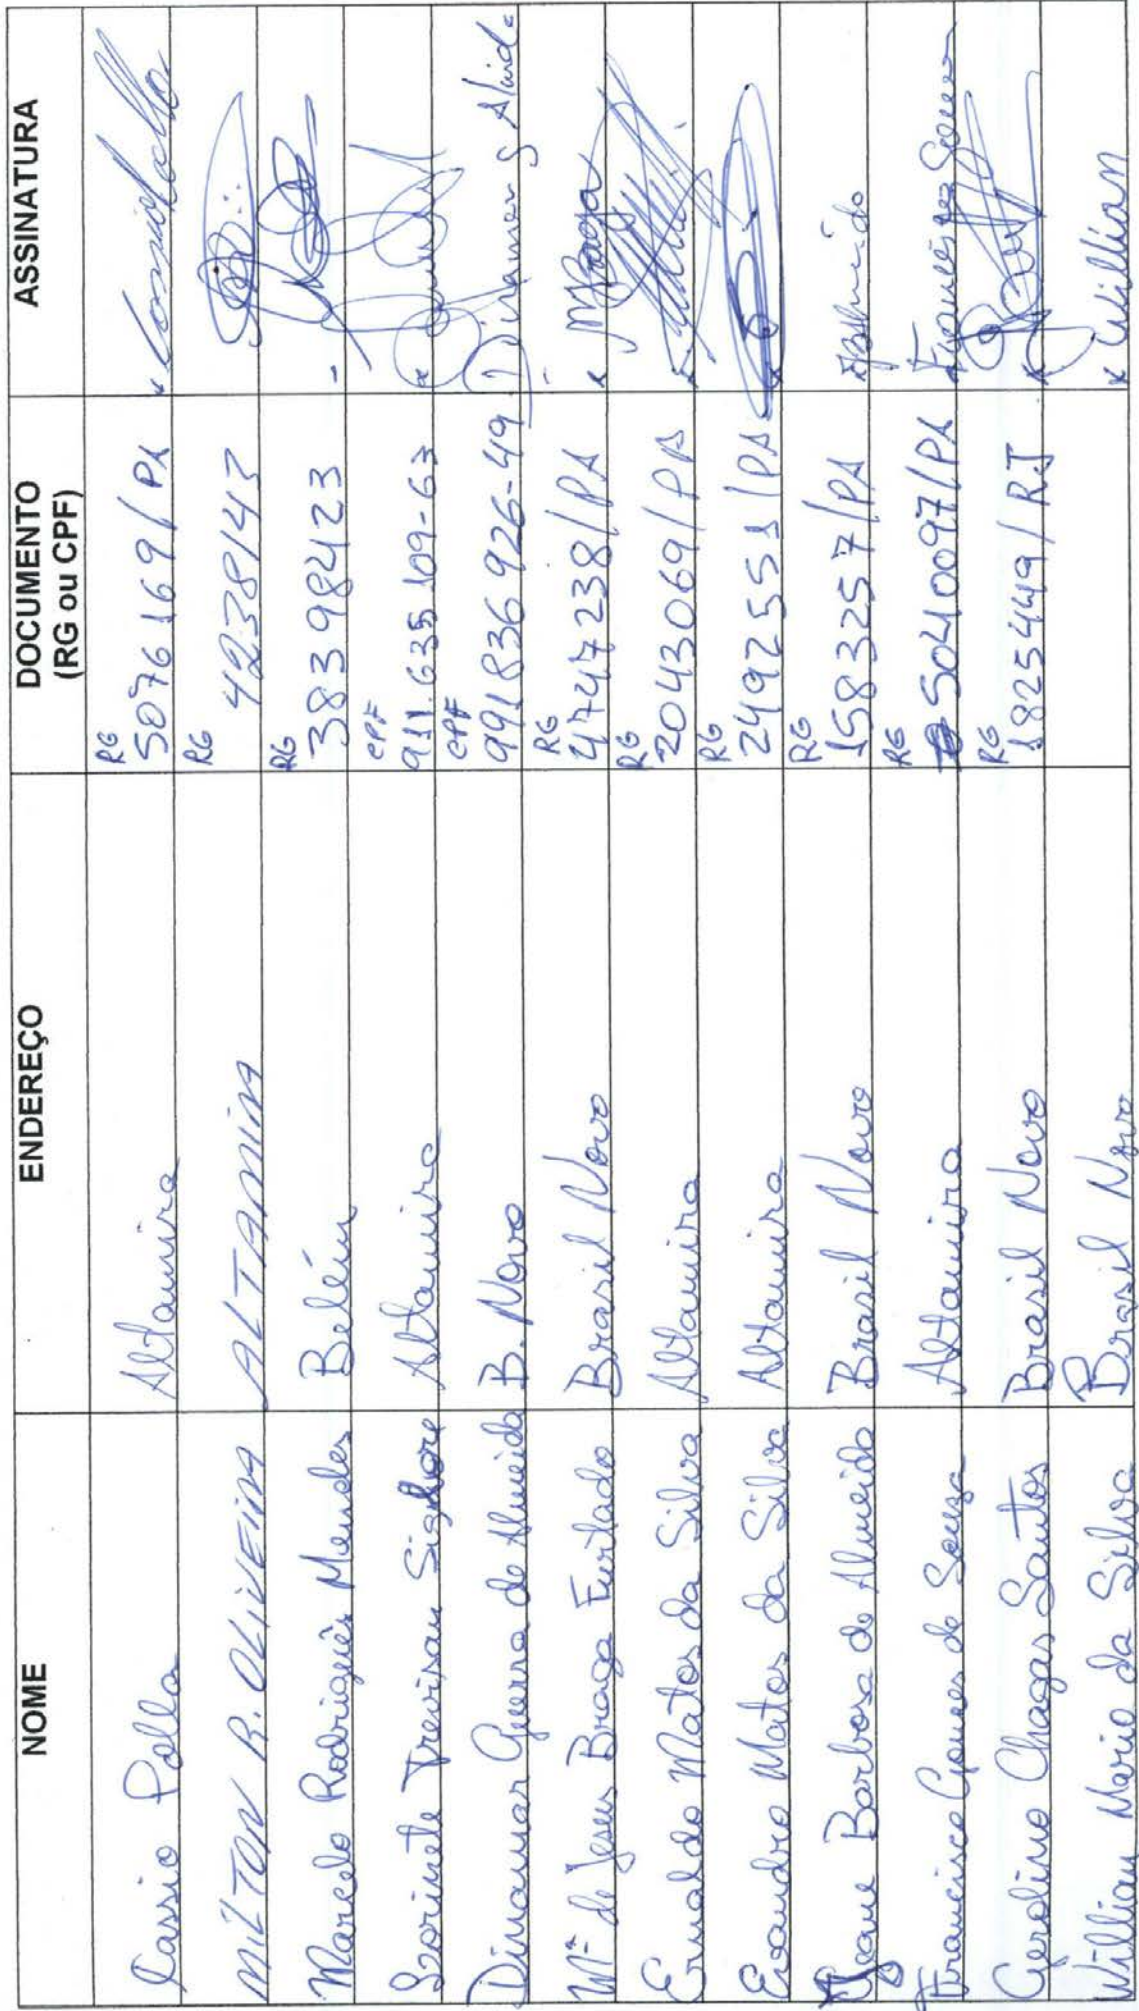 NOME ENDEREÇO DOCUMENTO (RG ou CPF) ASSINATURA
Cassio Polla Altamira RG 5076169/PA
MILTON R. OLIVEIRA ALTAMIRA RG 4238143
Marcelo Rodrigues Mendes Belém RG 383998423
Lorinete Trevisan Altamira CPF 911.635109-63
Diramar Guerra de Almeida B. Novo CPF 991836926-49 Diramar G Almida
Mª de Jesus Braga Furtado Brasil Novo RG 4747238/PA MBraga
Ernaldo Matos da Silva Altamira RG 2043069/PA
Evandro Matos da Silva Altamira RG 2492551/PA
Jeane Barbosa de Almeida Brasil Novo RG 1583257/PA
Francisco Gomes de Souza Altamira RG 5040097/PA
Gerolino Chagas Santos Brasil Novo RG 1825449/RJ
Willian Mario da Silva Brasil Novo x Willian